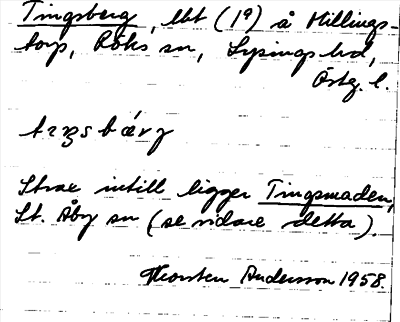 Tingsberg, lht (1ª) å Millings-
torp, Röks sn, Lysings hd,
Östg. l.
tıŋsbærɣ
Strax intill ligger Tingsmaden,
St. Åby sn (se vidare detta).
Thorsten Andersson 1958.